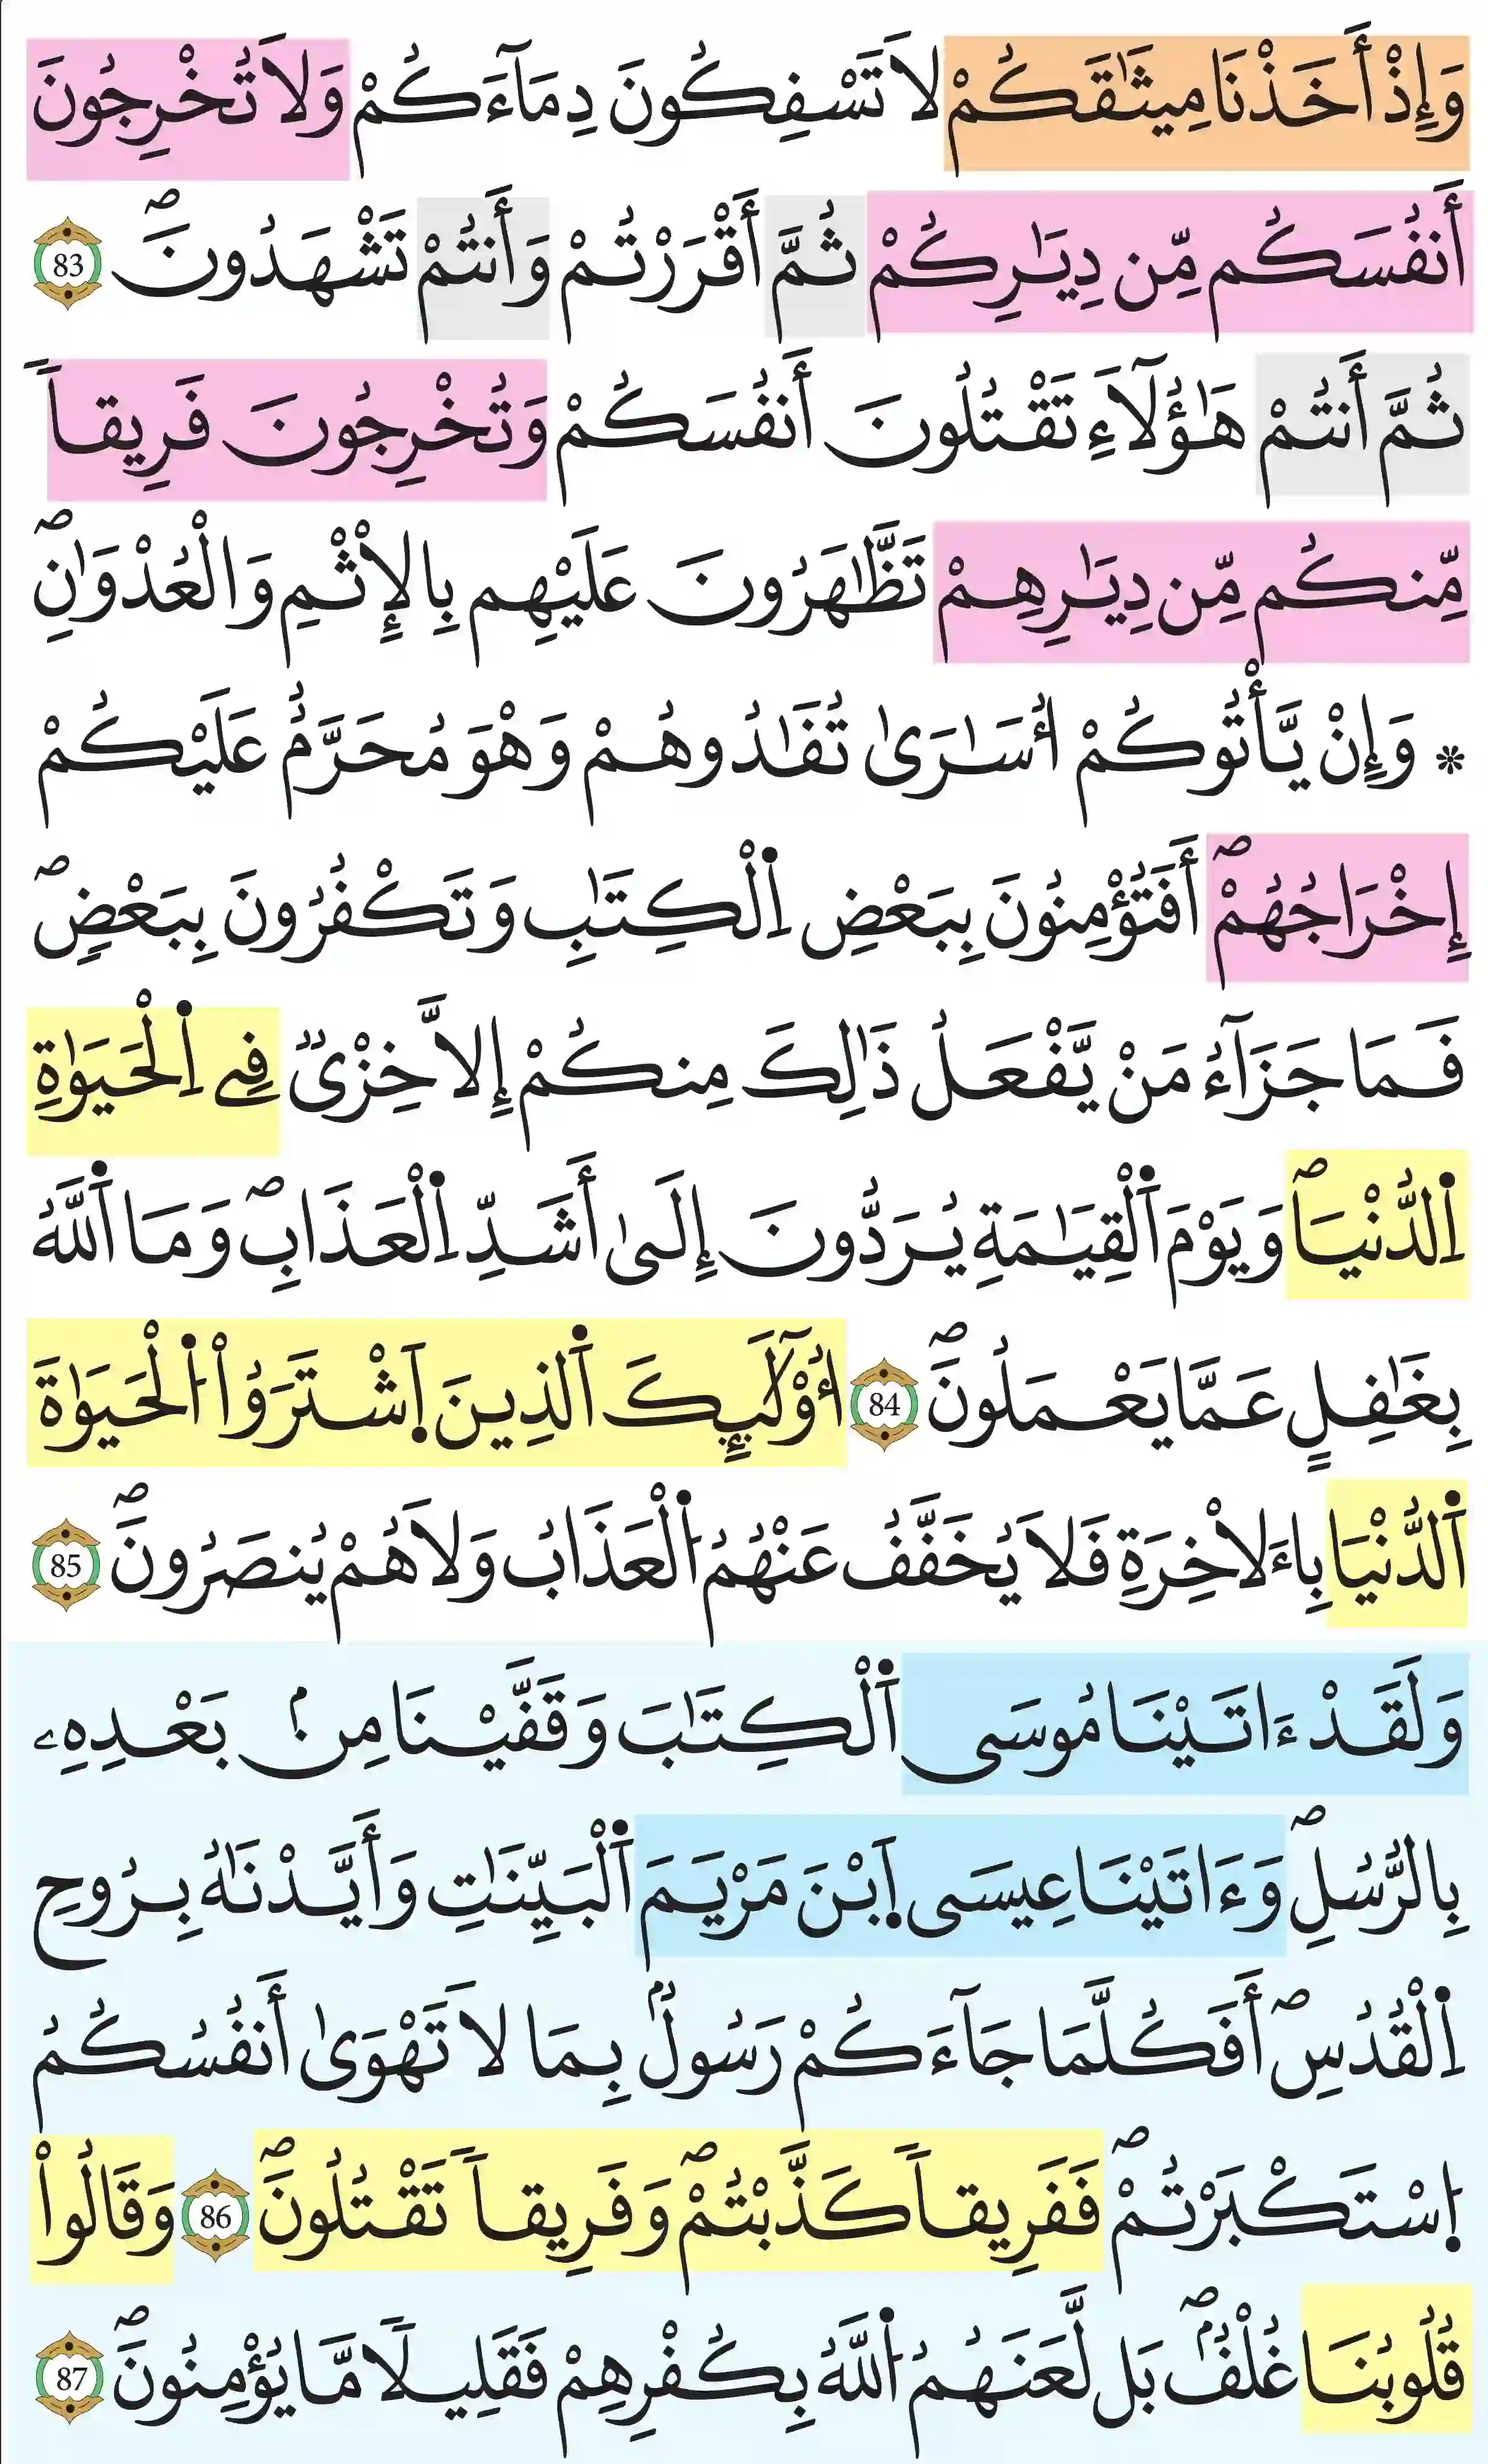 وَإِذْ أَخَذْنَا مِيثَٰقَكُمْ لَا تَسْفِكُونَ دِمَآءَكُمْ وَلَا تُخْرِجُونَ
أَنفُسَكُم مِّن دِيَٰرِكُمْ ثُمَّ أَقْرَرْتُمْ وَأَنتُمْ تَشْهَدُونَۖ 83
ثُمَّ أَنتُمْ هَٰٓؤُلَآءِ تَقْتُلُونَ أَنفُسَكُمْ وَتُخْرِجُونَ فَرِيقاً
مِّنكُم مِّن دِيَٰرِهِمْ تَظَّٰهَرُونَ عَلَيْهِم بِالْإِثْمِ وَالْعُدْوَٰنِۖ
* وَإِنْ يَّأْتُوكُمْ أُسَٰرَىٰ تُفَٰدُوهُمْ وَهْوَ مُحَرَّمٌ عَلَيْكُمْ
إِخْرَاجُهُمْۖ أَفَتُؤْمِنُونَ بِبَعْضِ اِ۬لْكِتَٰبِ وَتَكْفُرُونَ بِبَعْضٍۖ
فَمَا جَزَآءُ مَنْ يَّفْعَلُ ذَٰلِكَ مِنكُمْ إِلَّا خِزْيٌ فِے اِ۬لْحَيَوٰةِ
اِ۬لدُّنْيَاۖ وَيَوْمَ اَ۬لْقِيَٰمَةِ يُرَدُّونَ إِلَىٰ أَشَدِّ اِ۬لْعَذَابِۖ وَمَا اَ۬للَّهُ
بِغَٰفِلٍ عَمَّا يَعْمَلُونَۖ 84 أُوْلَٰٓئِكَ اَ۬لذِينَ اَ۪شْتَرَوُاْ اُ۬لْحَيَوٰةَ
اَ۬لدُّنْيَا بِاءَلَاخِرَةِ فَلَا يُخَفَّفُ عَنْهُمُ اُ۬لْعَذَابُ وَلَا هُمْ يُنصَرُونَۖ 85
وَلَقَدْ ءَاتَيْنَا مُوسَى اَ۬لْكِتَٰبَ وَقَفَّيْنَا مِنۢ بَعْدِهِۦ
بِالرُّسُلِۖ وَءَاتَيْنَا عِيسَى اَ۪بْنَ مَرْيَمَ اَ۬لْبَيِّنَٰتِ وَأَيَّدْنَٰهُ بِرُوحِ
اِ۬لْقُدُسِۖ أَفَكُلَّمَا جَآءَكُمْ رَسُولٌۢ بِمَا لَا تَهْوَىٰ أَنفُسُكُمُ
اُ۪سْتَكْبَرْتُمْۖ فَفَرِيقاً كَذَّبْتُمْۖ وَفَرِيقاً تَقْتُلُونَۖ 86 وَقَالُواْ
قُلُوبُنَا غُلْفُۢۖ بَل لَّعَنَهُمُ اُ۬للَّهُ بِكُفْرِهِمْ فَقَلِيلًا مَّا يُؤْمِنُونَۖ 87